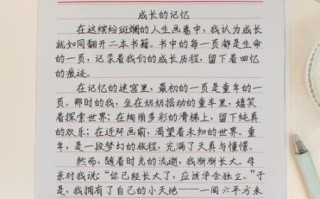 成长的记忆
在这缤纷斑斓的人生画卷中，我认为成长
就如同翻开一本书籍。书中的每一页都是生命
的一页，记录着我们的成长历程，留下着回忆
的痕迹。
在记忆的迷宫里，最初的一页是童年的一
页。那时的我，坐在奶奶摇动的童车里，嬉笑
着探索世界；在绚丽多彩的滑梯上，留下纯真
的欢乐；在连环画前，渴望着未知的世界。童
年，是一段梦幻的旅程，充满了天真与憧憬。
然而，随着时光的流逝，我渐渐长大。母
亲对我说：“你已经长大了，应该学会独立。”于
是，我拥有了自己的小天地——一间六平方米